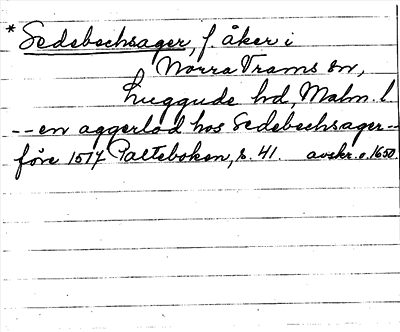 * Sedebechsager, f. åker i
Norra Vrams sn,
Luggude hd, Malm. l.
-- en aggerlad hos Sedebechsager --
före 1517 Palteboken, s. 41. avskr. o. 1650.